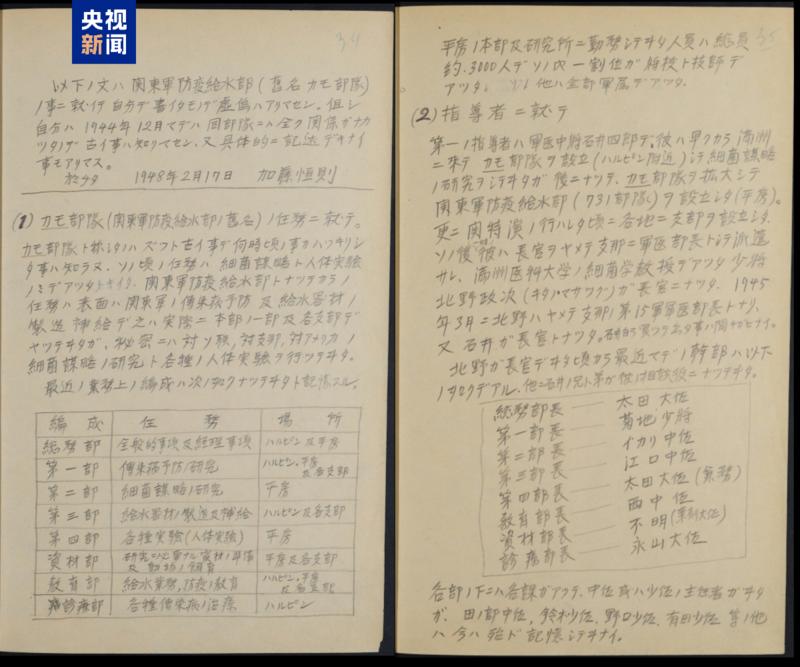 央视
新闻
34
以下ノ文ハ関東軍防疫給水部(舊名カモ部隊)
ノ事ニ就イテ自分デ書イタモノデ虚偽ハアリマセン。但シ
自分ハ1944年12月マデハ同部隊ニハ全ク関係ガナカ
ツタノデ古イ事ハ知リマセン、又具体的ニ記述デキナイ
事モアリマス。
於チタ 1948年2月17日 加藤恒則
(1) カモ部隊(関東軍防疫給水部ノ舊名)ノ任務ニ就テ。
カモ部隊ト称シタノハズツト古イ事デ何時頃ノ事カハツキリシ
タ事ハ知ラヌ、ソノ頃ノ任務ハ細菌謀略ト人体実験
ノミデアツタ 関東軍防疫給水部トナツテカラノ
任務ハ表面ハ関東軍ノ傳染病予防及給水器材ノ
製造補給デ之ハ実際ニ本部ノ一部及各支部デ
ヤツテヰタガ、秘密ニハ対ソ聯、対支那、対アメリカノ
細菌謀略ノ研究ト各種ノ人体実験ヲ行ツテヰタ。
最近ノ業務上ノ編成ハ次ノ如クナツテヰタト記憶スル。
編成 任務 場所
総務部 全般的事項及経理事項 ハルピン及平房
第一部 傳染病予防ノ研究 ハルピン、平房及各支部
第二部 細菌謀略ノ研究 平房
第三部 給水器材ノ製造及補給 ハルピン及各支部
第四部 各種実験(人体実験) 平房
資材部 研究ニ必要ナル資材ノ準備及動物ノ飼育 平房及各支部
教育部 給水業務、防疫ノ教育 ハルピン、平房及各支部
診療部 各種傳染病ノ治療 ハルピン
35
平房ノ本部及研究所ニ勤務シテヰタ人員ハ総員
約3000人デソノ内一割位ガ将校ト技師デ
アツタ。 他ハ全部軍属デアツタ。
(2) 指導者ニ就テ
第一ノ指導者ハ軍医中将石井四郎デ、彼ハ早クカラ満洲
ニ来テカモ部隊ヲ設立(ハルピン附近)シテ細菌謀略
ノ研究ヲシテヰタガ後ニナツテ、カモ部隊ヲ拡大シテ
関東軍防疫給水部(731部隊)ヲ設立シタ(平房)。
更ニ関特演ノ行ハレタ頃ニ各地ニ支部ヲ設立シタ、
ソノ後彼ハ長官ヲヤメテ支那ニ軍医部長トシテ派遣
サレ、満洲医科大学ノ細菌学教授デアツタ少将
北野政次(キタノマサツグ)ガ長官ニナツタ、1945
年3月ニ北野ハヤメテ支那ノ第15軍軍医部長トナリ、
又石井ガ長官トナツタ。
北野ガ長官デヰタ頃カラ最近マデノ幹部ハ以下
ノ如クデアル、
総務部長 太田大佐
第一部長 菊地少将
第二部長 イカリ中佐
第三部長 江口中佐
第四部長 太田大佐(兼務)
教育部長 西中佐
資材部長 不明
診療部長 永山大佐
各部ノ下ニハ各課ガアツテ、中佐或ハ少佐ノ主任者ガヰタ
ガ、田ノ部中佐、鈴木少佐、野口少佐、有田少佐等ノ他
ハ今ハ殆ド記憶シテヰナイ。